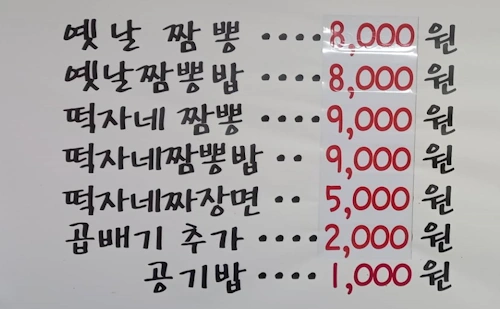 옛날 짬뽕 ···· 8,000 원
옛날짬뽕밥 ···· 8,000 원
떡자네 짬뽕 ···· 9,000 원
떡자네짬뽕밥 ·· 9,000 원
떡자네짜장면 ·· 5,000 원
곱배기 추가 ···· 2,000 원
공기밥 ···· 1,000 원